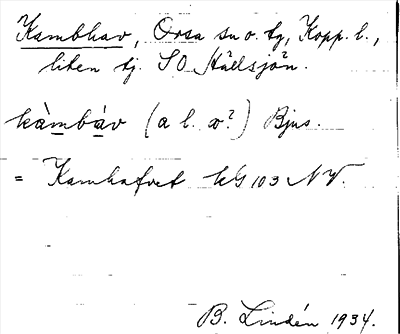 Kambhav, Orsa sn o. tg, Kopp. l.,
liten tj. SO Hällsjön.
kàmbàv (a l. ɒ?) Bjus.
= Kamhafvet kG 103 NV.
B. Lindén 1934.